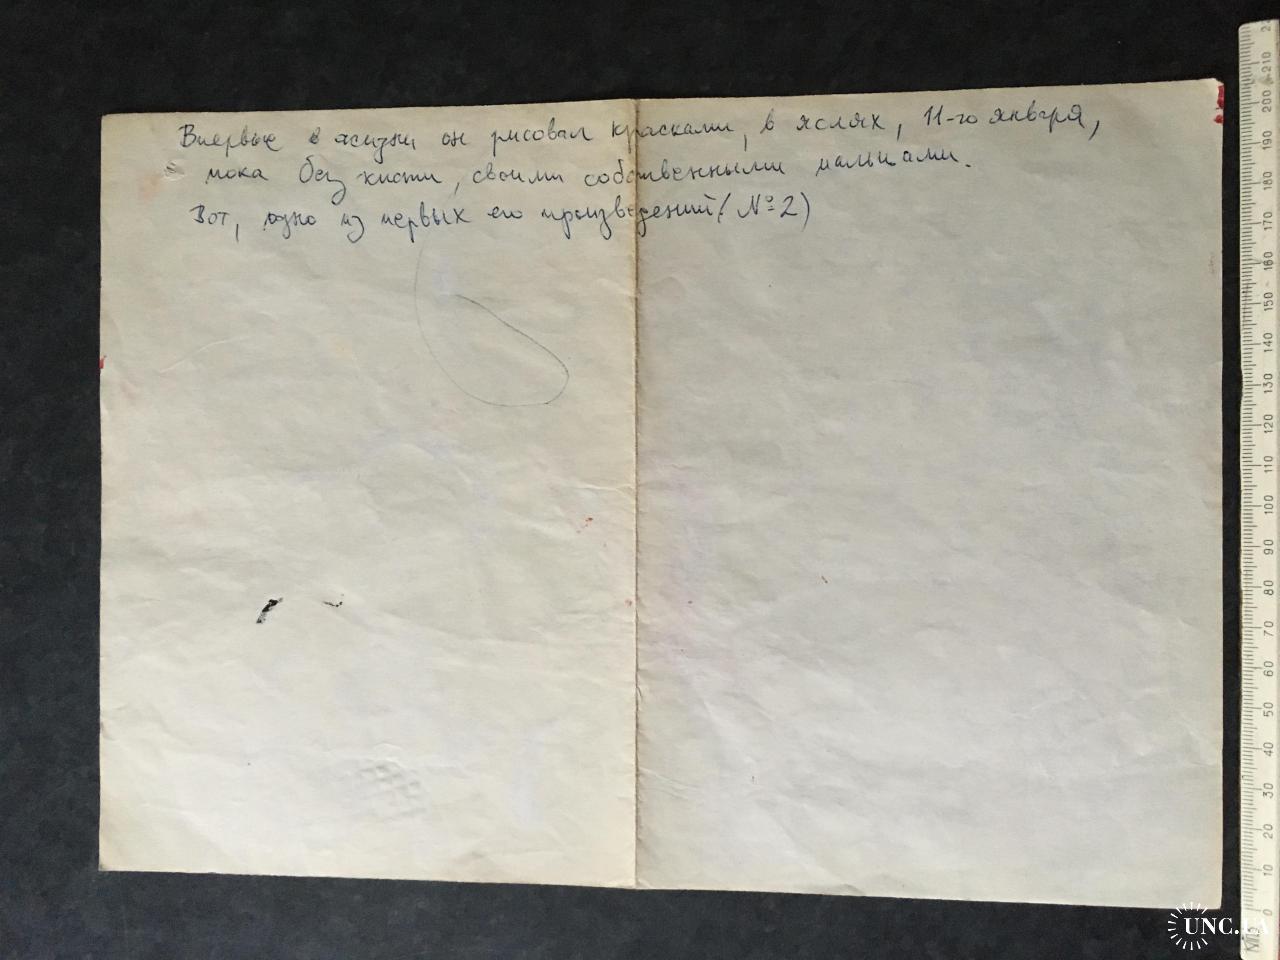 Впервые в жизни он рисовал красками, в яслях, 11-го января,
пока без кисти, своими собственными пальцами.
Вот, одно из первых его произведений! (№2)
210
200
190
180
170
160
150
140
130
120
110
100
90
80
70
60
50
40
30
20
10
0
UNC.UA